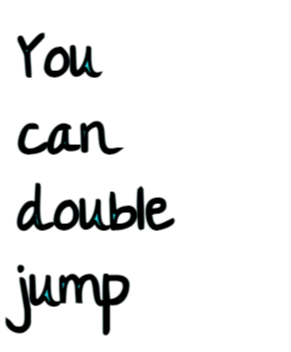 You
can
double
jump